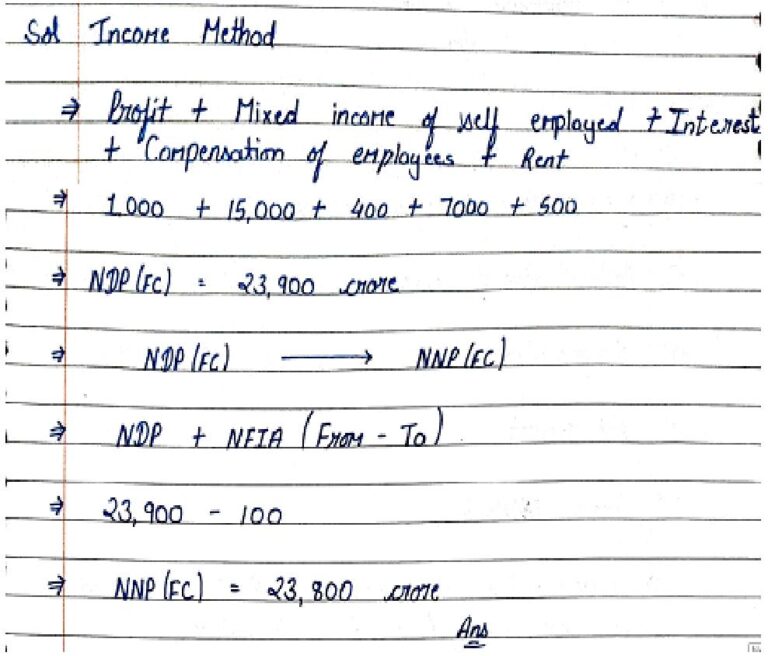 Sol Income Method
⇒ Profit + Mixed income of self employed + Interest
+ Compensation of employees + Rent
⇒ 1000 + 15,000 + 400 + 7000 + 500
⇒ NDP(FC) = 23,900 crore
⇒ NDP(FC) ⟶ NNP(FC)
⇒ NDP + NFIA (From - To)
⇒ 23,900 - 100
⇒ NNP(FC) = 23,800 crore
Ans